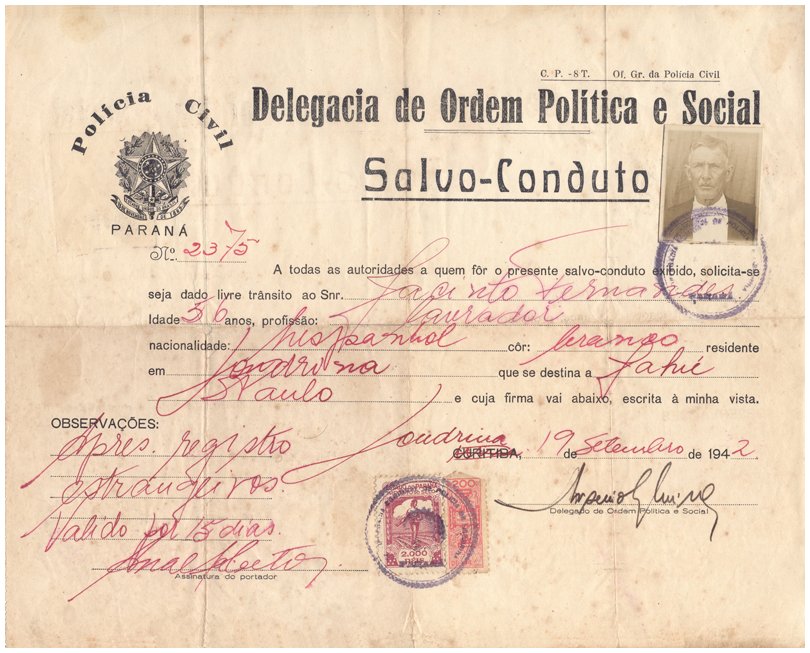 C. P. - 8 T. Of. Gr. da Polícia Civil
Polícia Civil
Delegacia de Ordem Política e Social
Salvo-Conduto
PARANÁ
Nº. 2375
A todas as autoridades a quem fôr o presente salvo-conduto exibido, solicita-se
seja dado livre trânsito ao Snr. Jacinto Fernandes
Idade 56 anos, profissão: Lavrador
nacionalidade: hispanhol côr: branco residente
em Londrina que se destina a Jahú
S Paulo e cuja firma vai abaixo, escrita à minha vista.
OBSERVAÇÕES:
Apres. registro
estrangeiros.
Valido por 15 dias.
Londrina CURITIBA, 19 de Setembro de 1942
Delegado de Ordem Política e Social
Assinatura do portador
2.000
200